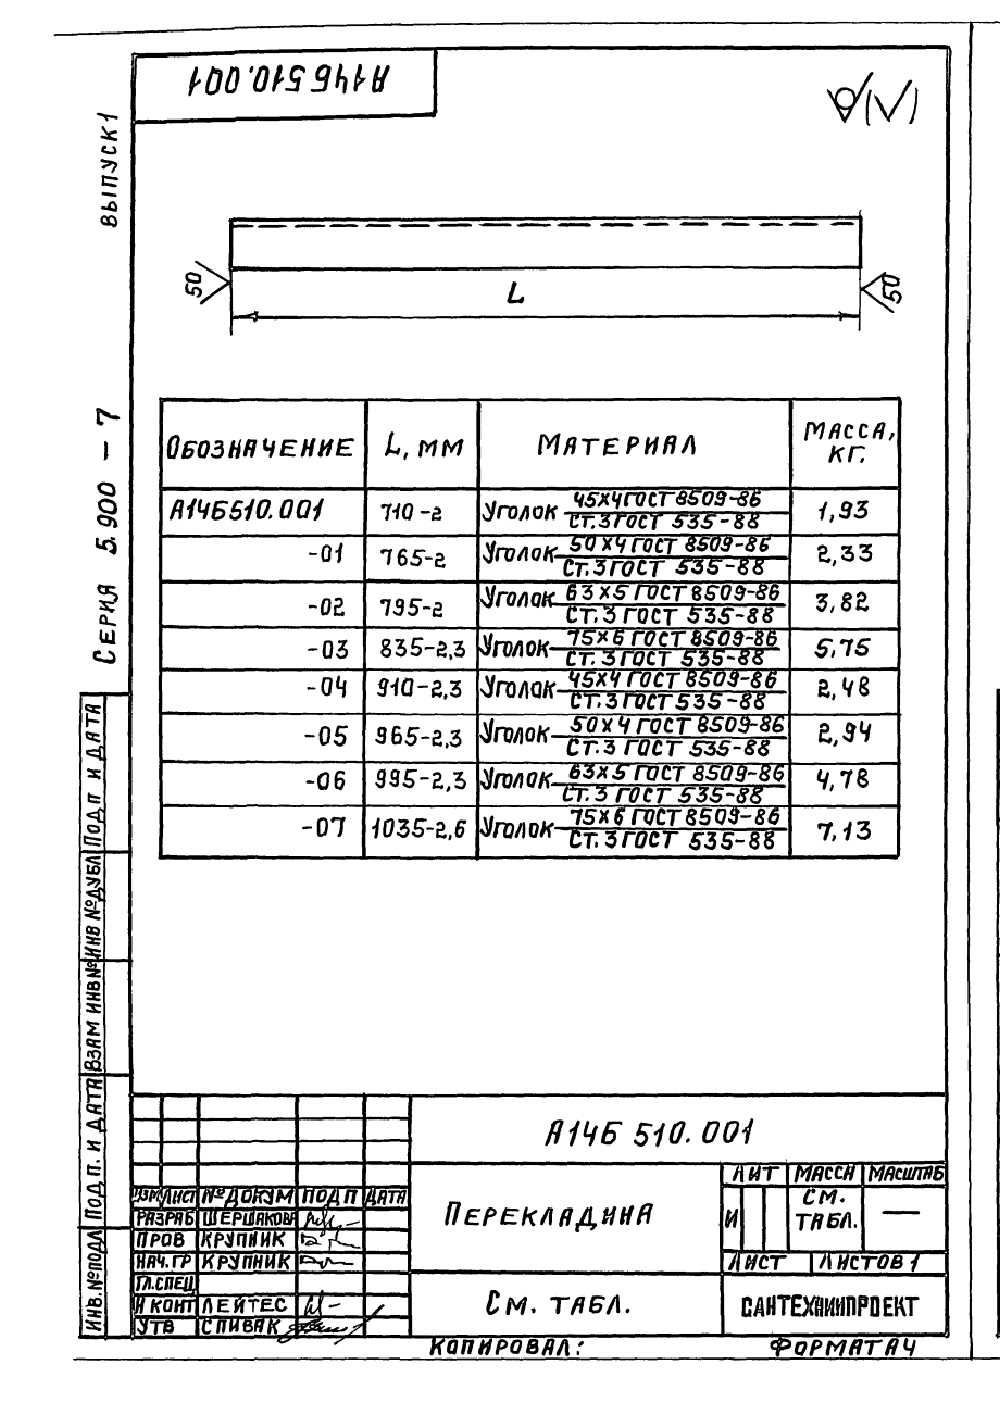 А14Б510.001
ВЫПУСК 1
СЕРИЯ 5.900 – 7
√(√)
50
50
L
ОБОЗНАЧЕНИЕ L, ММ МАТЕРИАЛ МАССА, КГ.
А14Б510.001 710-2 УГОЛОК 45×4 ГОСТ 8509-86 / СТ.3 ГОСТ 535-88 1,93
-01 765-2 УГОЛОК 50×4 ГОСТ 8509-86 / СТ.3 ГОСТ 535-88 2,33
-02 795-2 УГОЛОК 63×5 ГОСТ 8509-86 / СТ.3 ГОСТ 535-88 3,82
-03 835-2,3 УГОЛОК 75×6 ГОСТ 8509-86 / СТ.3 ГОСТ 535-88 5,75
-04 910-2,3 УГОЛОК 45×4 ГОСТ 8509-86 / СТ.3 ГОСТ 535-88 2,48
-05 965-2,3 УГОЛОК 50×4 ГОСТ 8509-86 / СТ.3 ГОСТ 535-88 2,94
-06 995-2,3 УГОЛОК 63×5 ГОСТ 8509-86 / СТ.3 ГОСТ 535-88 4,78
-07 1035-2,6 УГОЛОК 75×6 ГОСТ 8509-86 / СТ.3 ГОСТ 535-88 7,13
ИНВ.№ПОДЛ ПОДП. И ДАТА ВЗАМ ИНВ№ ИНВ №ДУБЛ ПОДП И ДАТА
А14Б 510.001
ИЗМ ЛИСТ №ДОКУМ ПОДП ДАТА
РАЗРАБ ШЕРШАКОВА
ПРОВ КРУПНИК
НАЧ.ГР КРУПНИК
ГЛ.СПЕЦ
Н КОНТ ЛЕЙТЕС
УТВ СПИВАК
ПЕРЕКЛАДИНА
ЛИТ МАССА МАСШТАБ
И СМ. ТАБЛ. —
ЛИСТ ЛИСТОВ 1
СМ. ТАБЛ.
САНТЕХНИИПРОЕКТ
КОПИРОВАЛ: ФОРМАТ А4